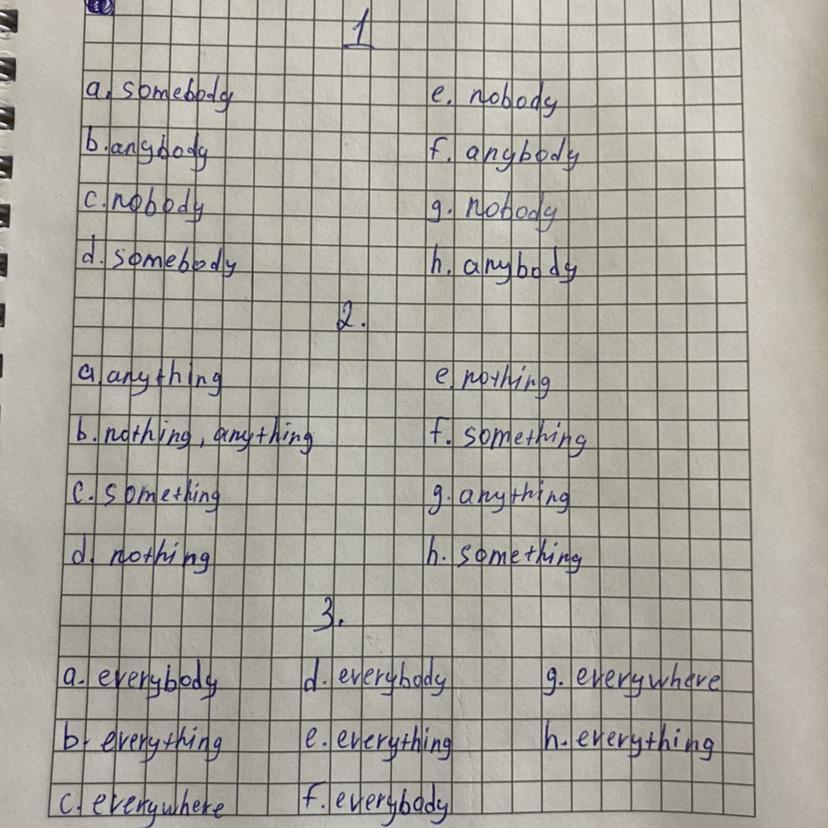 1
a. somebody
b. anybody
c. nobody
d. somebody
e. nobody
f. anybody
g. nobody
h. anybody
2.
a. anything
b. nothing, anything
c. something
d. nothing
e. nothing
f. something
g. anything
h. something
3.
a. everybody
b. everything
c. everywhere
d. everybody
e. everything
f. everybody
g. everywhere
h. everything